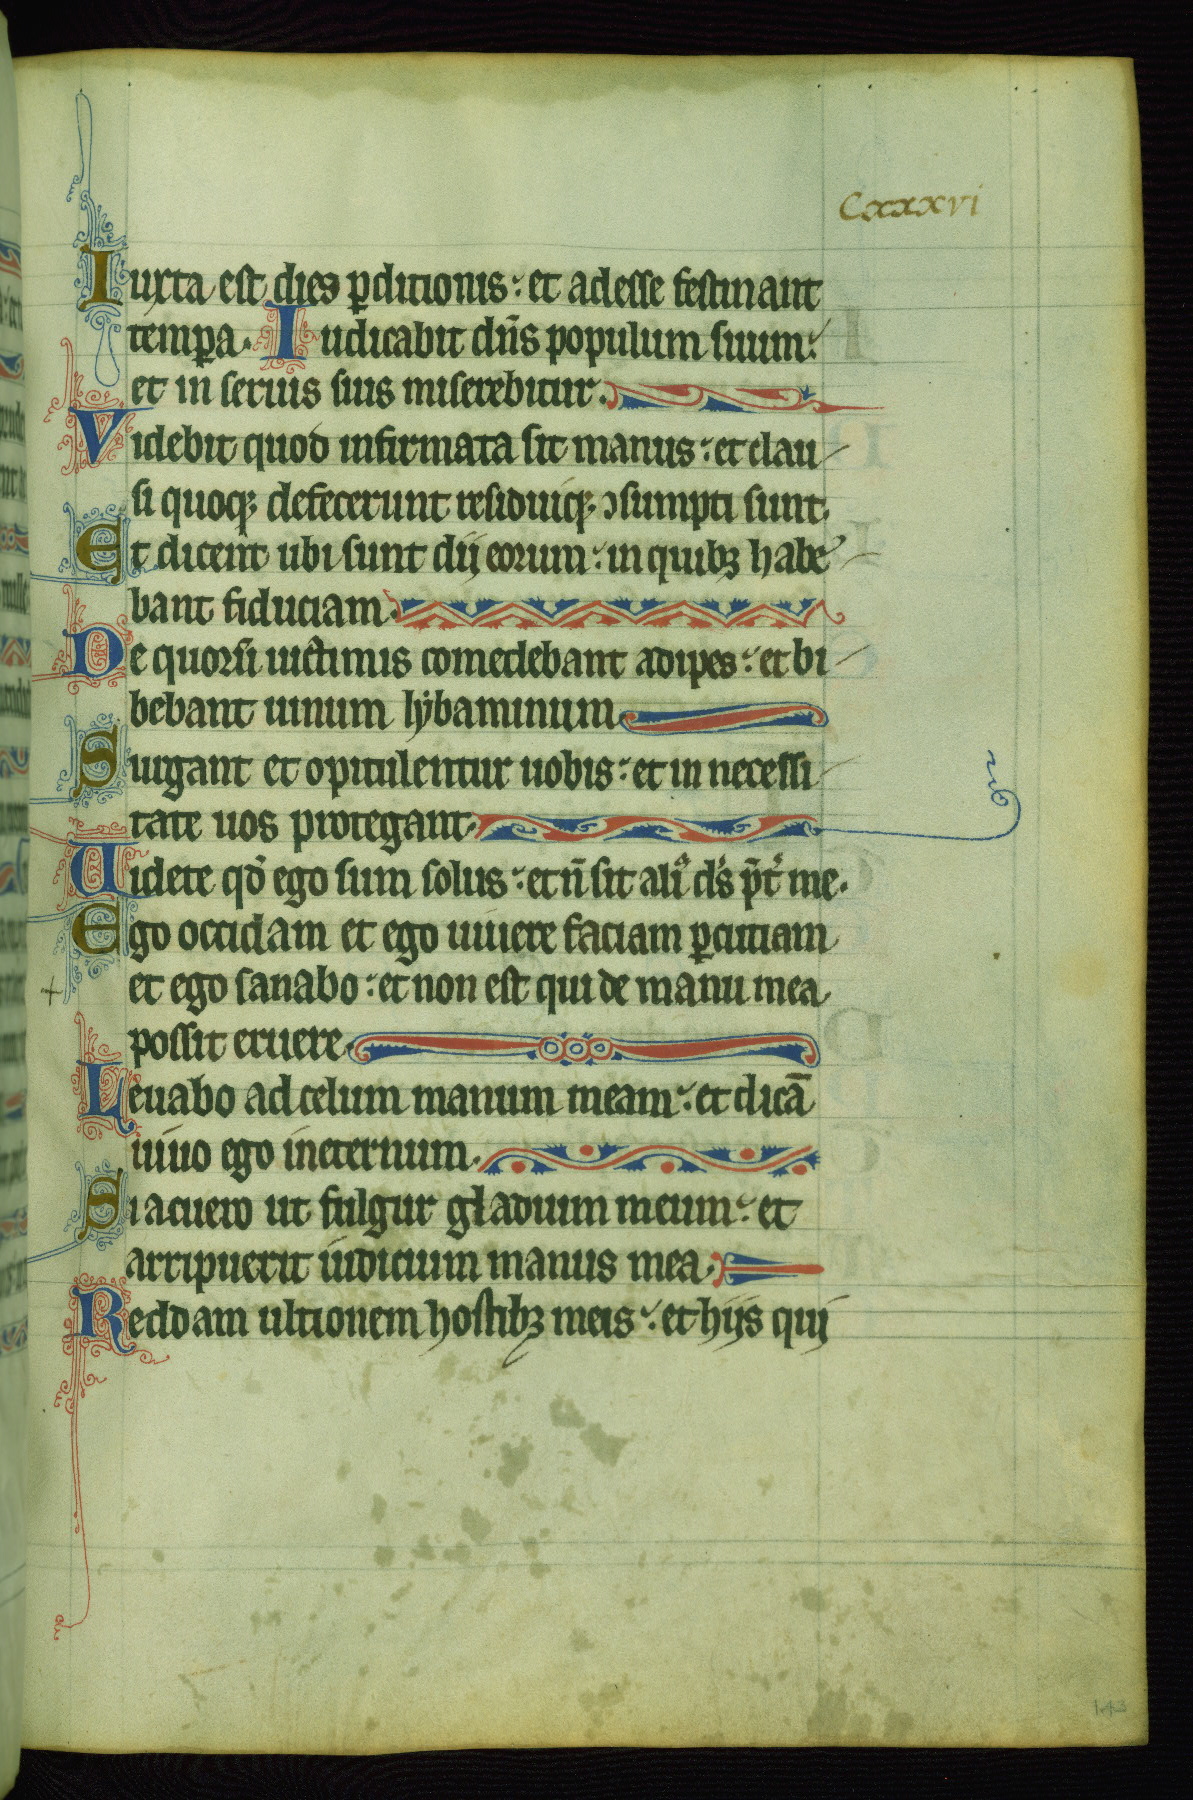 Cxxxvi
Iuxta est dies p̱ditionis : et adesse festinant
temp̱a. Iudicabit dn̄s populum suum :
et in seruis suis miserebitur.
Videbit quod infirmata sit manus : et clau
si quoqꝫ defecerunt residuiqꝫ ↄsumpti sunt.
Et dicent ubi sunt dij eorum : in quibꝫ habe
bant fiduciam.
De quorū uictimis comedebant adipes : et bi
bebant uinum lybaminum.
Surgant et opitulentur uobis : et in necessi
tate uos protegant.
Uidete qd̄ ego sum solus : et n̄ sit ali ds p̄t me.
Ego occidam et ego uiuere faciam p̱cutiam
et ego sanabo : et non est qui de manu mea
possit eruere.
Leuabo ad celum manum meam : et dicā
uiuo ego ineternum.
Si acuero ut fulgur gladium meum : et
arripuerit iudicium manus mea.
Reddam ultionem hostibꝫ meis : et hijs qui
143